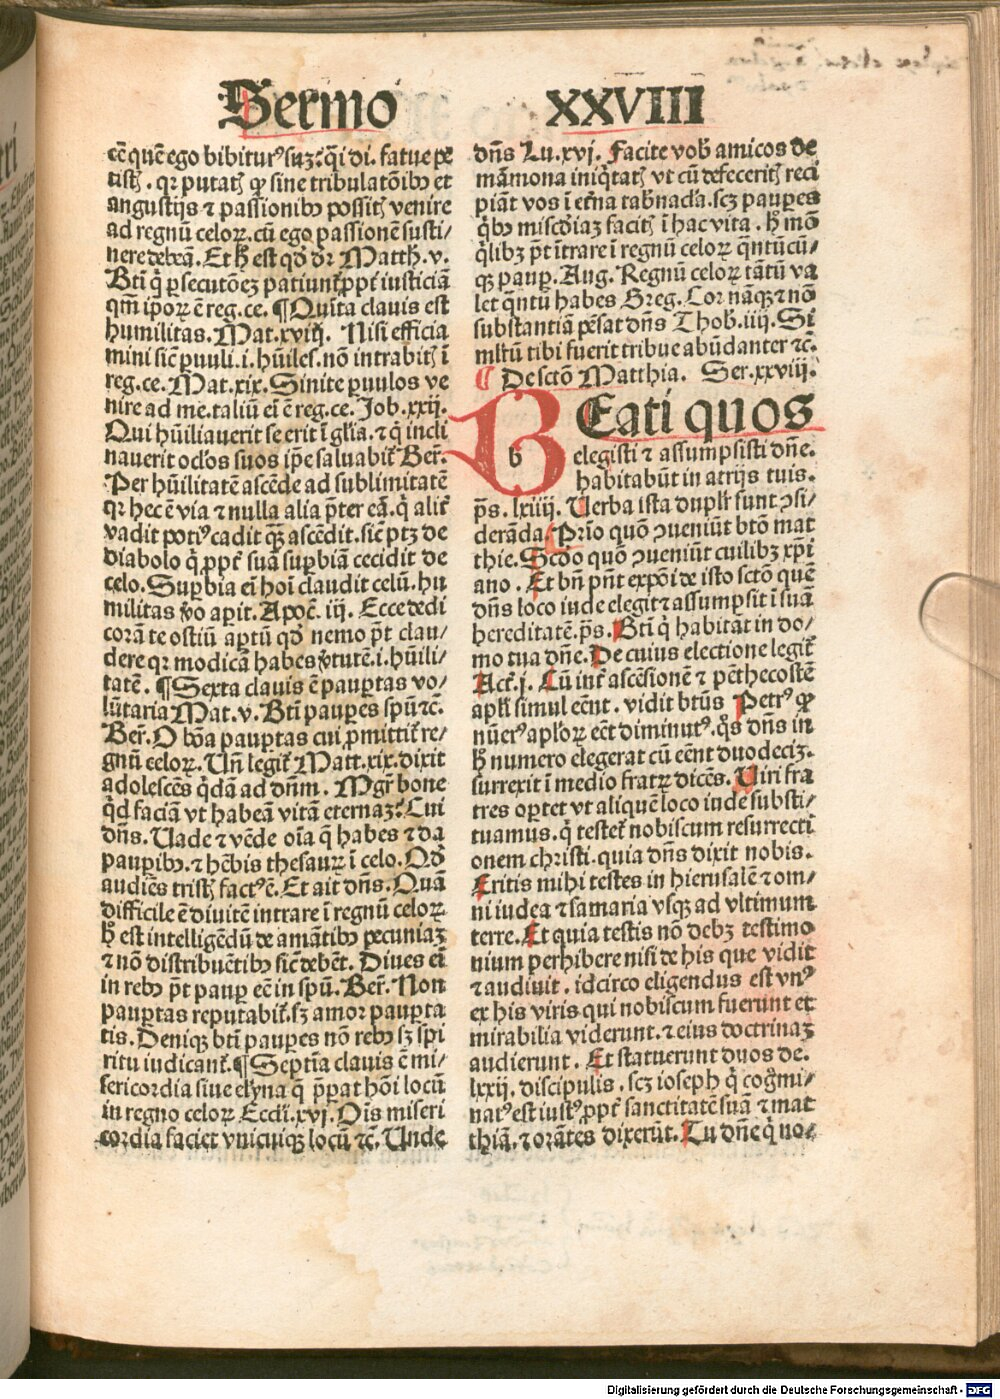 Sermo XXVIII
cē quē ego bibitur⁹ suꝫ? q̄i di. fatue pe
tistꝭ. qꝛ putatꝭ ꝙ sine tribulatōibꝰ et
angustijs ⁊ passionibꝰ possitꝭ venire
ad regnū celoꝝ. cū ego passionē susti-
nere debeā. Et hͦ est qd̓ dr̄ Matth. v.
Bti̓ q̓ ꝑsecutōeꝫ patiunt̉ ꝓpt̉ iusticiā
qm̄ ipoꝝ ē reg. ce. ¶ Quīta clauis est
humilitas. Mat. xviij. Nisi efficia
mini sic̄ ꝑuuli .i. hūiles. nō intrabitꝭ ī
reg. ce. Mat. xix. Sinite ꝑuulos ve
nire ad me. taliū ei̓ ē reg. ce. Job. xxij.
Qui hūiliauerit se erit ī gl̓ia. ⁊ q̓ incli
nauerit ocl̓os suos ip̄e saluabit̉ Ber̄.
Per hūilitatē ascēde ad sublimitatē
qꝛ hec ē via ⁊ nulla alia p̄ter eā. q̓ alit̉
vadit poti⁹ cadit qꝫ̄ ascēdit. sic̄ ptꝫ de
diabolo q̓ ꝓpt̉ suā suꝑbiā cecidit de
celo. Suꝑbia ei̓ hoi̓ claudit celū. hu
militas ꝟo aꝑit. Apoc̄. iij. Ecce dedi
corā te ostiū aꝑtū qd̓ nemo pt̄ clau-
dere qꝛ modicā habes ꝟtutē .i. hūili-
tatē. ¶ Sexta clauis ē pauꝑtas vo-
lūtaria Mat. v. Bti̓ pauꝑes spū ⁊c̄.
Ber̄. O bōa pauꝑtas cui ꝓmittit̉ re-
gnū celoꝝ. Un̄ legit̉ Matt. xix. dixit
adolescēs q̓dā ad dn̄m. Mgr̄ bone
qd̓ faciā vt habeā vitā eternaꝫ? Cui
dn̄s. Uade ⁊ vēde oīa q̄ habes ⁊ da
pauꝑibꝰ. ⁊ hēbis thesaur̄ ī celo. Qd̓
audiēs tristꝭ fact⁹ ē. Et ait dn̄s. Quā
difficile ē diuitē intrare ī regnū celoꝝ
hͦ est intelligēdū de amātibꝰ pecuniaꝫ
⁊ nō distribuētibꝰ sic̄ debēt. Diues ei̓
in rebꝰ pt̄ pauꝑ eē in spū. Ber̄. Non
pauꝑtas reputabit̉. sꝫ amor pauꝑta
tis. Deniqꝫ bti̓ pauꝑes nō rebꝰ sꝫ spi
ritu iudicant̉. ¶ Septīa clauis ē mi-
sericordia siue elyna q̄ p̄ꝑat hōi locū
in regno celoꝝ Eccl̓i. xvj. Ois miseri
cordia faciet vnicuiqꝫ locū ⁊c̄. Unde
dn̄s Lu. xvj. Facite vob̓ amicos de
māmona iniq̓tatꝭ vt cū defeceritꝭ reci
piāt vos ī et̉na tab̓nacl̓a. scꝫ pauꝑes
q̓bꝰ misc̄diaꝫ facitꝭ ī hac vita. hͦ mō
q̓libꝫ pt̄ ītrare ī regnū celoꝝ q̄ntūcū-
qꝫ pauꝑ. Aug. Regnū celoꝝ tātū va
let q̄ntū habes Greg. Cor nāqꝫ ⁊ nō
substantiā pēsat dn̄s Thob. iiij. Si
ml̓tū tibi fuerit tribue abūdanter ⁊c̄.
¶ De sctō Matthia. Ser. xxviij.
BEati quos
elegisti ⁊ assumpsisti dn̄e.
habitabūt in atrijs tuis.
ps̄. lxiiij. Uerba ista dupl̓r sunt ꝯsi-
derāda. Prīo quō ꝯueniūt btō mat
thie. Scdo quō ꝯueniūt cuilibꝫ xp̄i
ano. Et bn̄ pn̄t expōi de isto sctō quē
dn̄s loco iude elegit ⁊ assumpsit ī suā
hereditatē. ps̄. Bti̓ q̓ habitāt in do-
mo tua dn̄e. De cuius electione legit̉
Act̉. j. Cū int̉ ascēsionē ⁊ pēthecostē
apl̓i simul eēnt. vidit btūs Petr⁹ ꝙ
nūer⁹ apl̓oꝝ eēt diminut⁹. q̓s dn̄s in
hͦ numero elegerat cū eēnt duodeciꝫ.
surrexit ī medio fratꝝ dicēs. Uiri fra
tres oꝑtet vt aliquē loco iude substi-
tuamus. q̓ testet̉ nobiscum resurrecti
onem christi. quia dn̄s dixit nobis.
Eritis mihi testes in hierusalē ⁊ om-
ni iudea ⁊ samaria vsqꝫ ad vltimum
terre. Et quia testis nō debꝫ testimo
nium perhibere nisi de his que vidit
⁊ audiuit. idcirco eligendus est vn⁹
ex his viris qui nobiscum fuerunt et
mirabilia viderunt. ⁊ eius doctrinaꝫ
audierunt. Et statuerunt duos de.
lxxij. discipulis. scꝫ ioseph q̓ cog̓mi-
nat⁹ est iust⁹ ꝓpt̉ sanctitatē suā ⁊ mat
thiā. ⁊ orātes dixerūt. Tu dn̄e q̓ no-
Digitalisierung gefördert durch die Deutsche Forschungsgemeinschaft - DFG